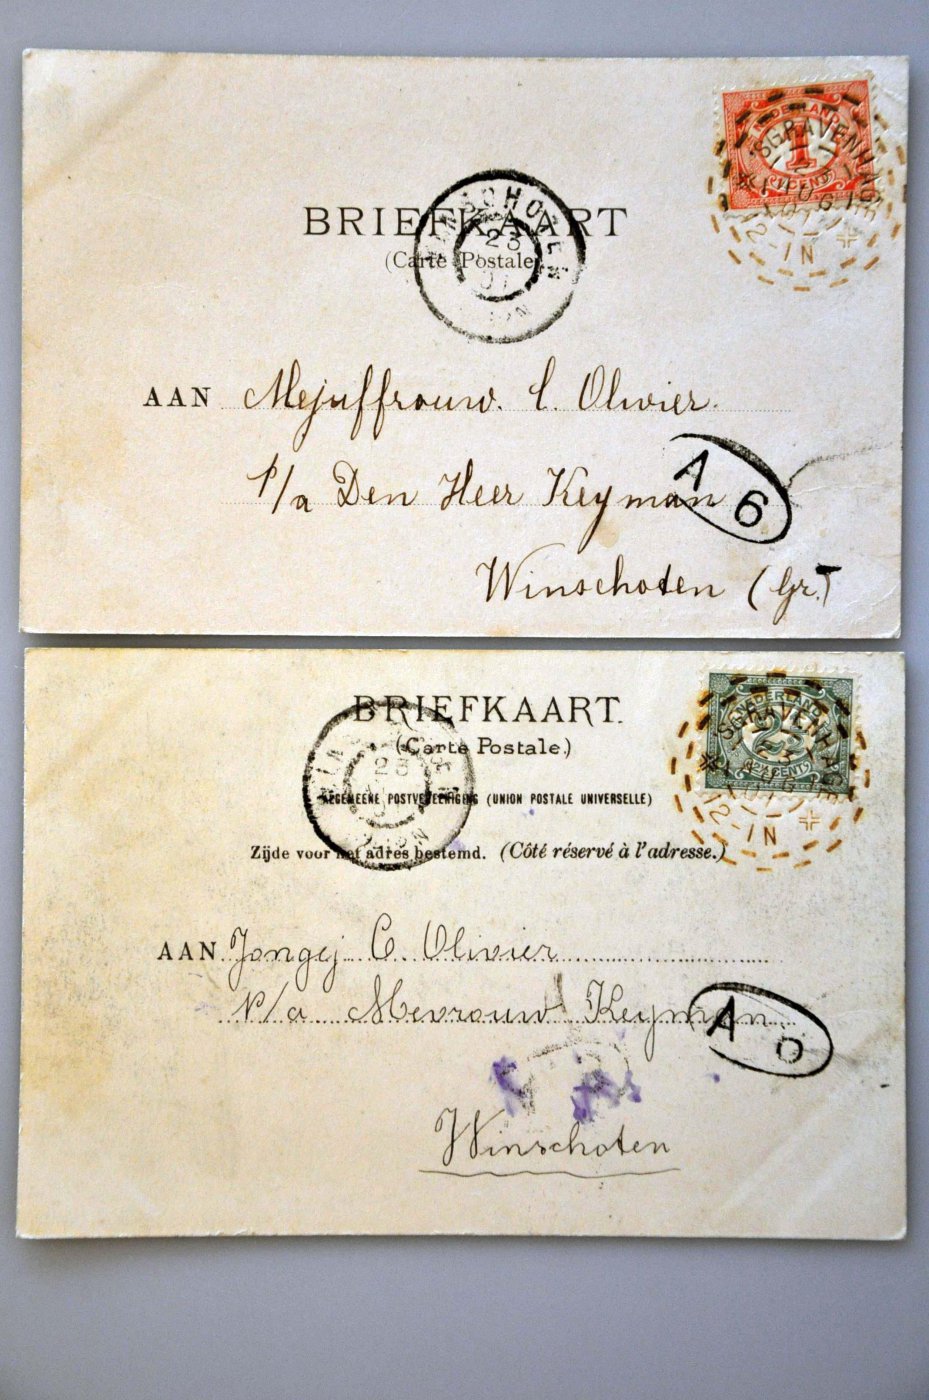 NEDERLAND
1
CENT
'SGRAVENHAGE
12-1N
BRIEFKAART
(Carte Postale)
WINSCHOTEN
23
AAN Mejuffrouw. C. Olivier.
p/a Den Heer Keyman
A 6
Winschoten (Gr.)
NEDERLAND
2½
CENT
'SGRAVENHAGE
23
12-1N
BRIEFKAART.
(Carte Postale.)
23
ALGEMEENE POSTVEREENIGING (UNION POSTALE UNIVERSELLE)
Zijde voor het adres bestemd. (Côté réservé à l'adresse.)
AAN Jongej. C. Olivier
p/a Mevrouw Keyman
A
Winschoten